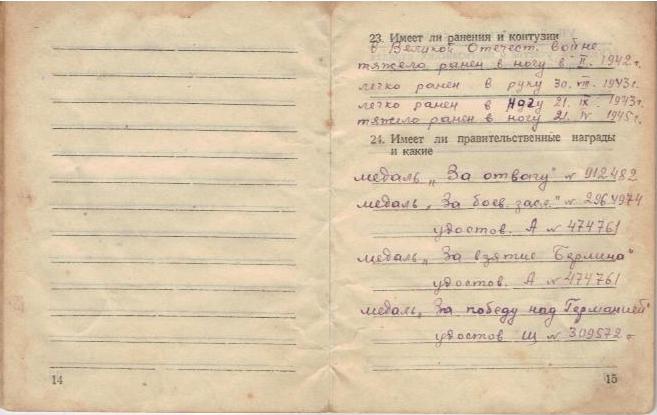 23. Имеет ли ранения и контузии
в Великой Отечест. войне
тяжело ранен в ногу в II. 1942 г.
легко ранен в руку 30. VIII. 1943 г.
легко ранен в ногу 21. IX. 1943 г.
тяжело ранен в ногу 21. IV 1945 г.
24. Имеет ли правительственные награды
и какие
медаль „За отвагу" № 912482
медаль „За боев. засл." № 2964974
удостов. А № 474761
медаль „За взятие Берлина"
удостов. А № 474761
медаль „За победу над Германией"
удостов Щ № 309572
14
15